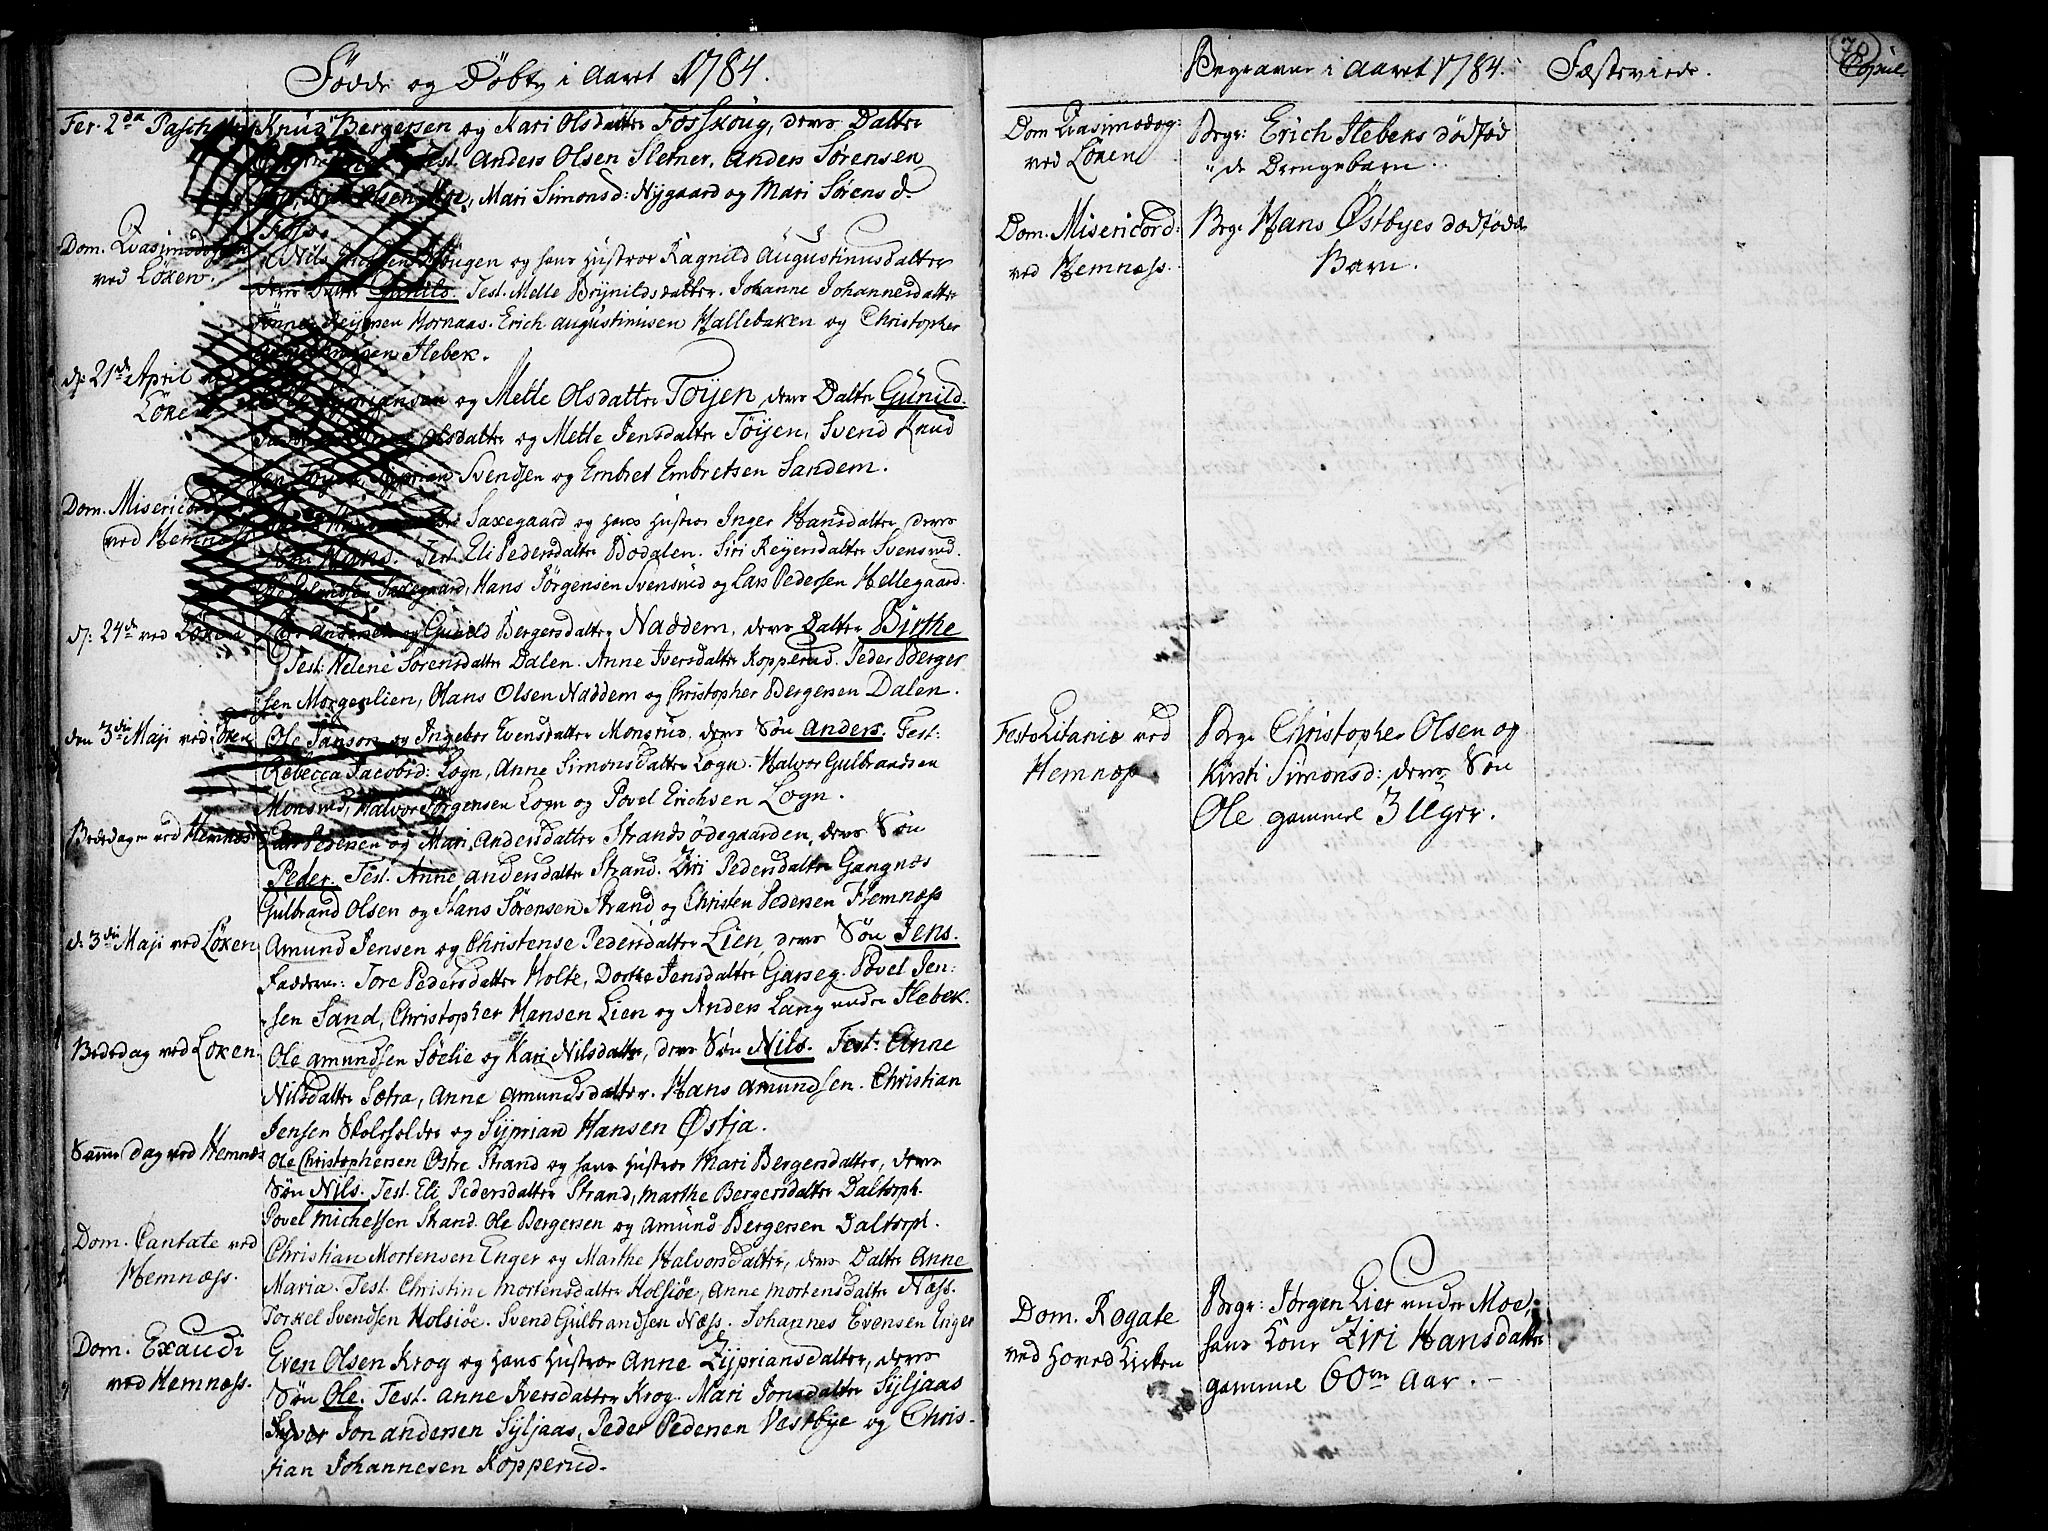 Fødde og Døbte i Aaret 1784.
Fer. 2da Pasch
Knud Bergersen og Mari Olsdatter Forskoug, deres Datter
Test. Anders Olsen Slemer, Anders Sørensen
Olsen Moe, Mari Simonsd: Nygaard og Mari Sørensd.
Fosse.
Dom. Qvasimodogen
ved Løken.
Nils og hans Hustroe Ragnild Augustinusdatter
deres Datter Gunild. Test. Mette Brynildsdatter. Johanne Johannesdatter
Tønnes Reyersen Hornaas. Erich Augustinusen Hallebaken og Christopher
Ilebek.
d: 21de April
Løken
og Mette Olsdatter Tøyen, deres Datter Gunild.
Olsdatter og Mette Jensdatter Tøyen, Svend Knud
Syprian Svendsen og Embret Embretsen Sandem.
Dom. Misericord
ved Hemnæss
Saxegaard og hans Hustroe Inger Hansdatter, deres
Søn Hans. Test. Eli Pedersdatter Bødalen. Siri Reyersdatter Svensrud.
Saxegaard, Hans Jørgensen Svensrud og Lars Pedersen Hellegaard.
d: 24de ved Løken
Lars Andersen og Gunild Bergersdatter Naddem, deres Datter Birthe
Test: Helene Sørensdatter Dalen. Anne Iversdatter Kopperud. Peder Berger
sen Morgenlien, Hans Olsen Naddem og Christopher Bergersen Dalen.
den 3die Maji ved Løken
Ole Janson og Ingebor Evensdatter Monsrud, deres Søn Anders. Test:
Rebecca Jacobsd: Logn, Anne Simonsdatter Logn. Halvor Gulbrandsen
Monsrud, Halvor Jørgensen Logn og Povel Erichsen Logn.
Bededagen ved Hemnæss
Lars Pedersen og Mari Andersdatter Strandsødegaarden, deres Søn
Peder. Test. Anne Andersdatter Strand. Ziri Pedersdatter Gangnæs
Gulbrand Olsen og Hans Sørensen Strand og Christen Pedersen Hemnæss
d: 3die Maji ved Løken
Amund Jensen og Christense Pedersdatter Lien, deres Søn Jens.
Faddere: Tore Pedersdatter Holte, Dorthe Jensdatter Gjarseg. Povel Jen:
sen Sand, Christopher Hansen Lien og Anders Lang under Ilebek.
Bededag ved Løken
Ole Amundsen Søelie og Kari Nilsdatter, deres Søn Nils. Test: Anne
Nilsdatter Sætra, Anne Amundsdatter. Hans Amundsen. Christian
Jensen Skoleholder og Syprian Hansen Østja.
Samme Dag ved Hemnæs
Ole Christophersen Østre Strand og hans Hustroe Mari Bergersdatter, deres
Søn Nils. Test. Eli Pedersdatter Strand, Marthe Bergersdatter Daltorph.
Povel Michelsen Strand. Ole Bergersen og Amund Bergersen Daltorph.
Dom. Cantate ved
Hemnæss.
Christian Mortensen Enger og Marthe Halvorsdatter, deres Datter Anne
Maria. Test. Christine Mortensdatter Holsiøe, Anne Mortensdatter Næss.
Torkel Svendsen Holsiøe. Svend Gulbrandsen Næss. Johannes Evensen Enger
Dom. Exaudi
ved Hemnæss.
Even Olsen Krog og hans Hustroe Anne Zypriansdatter, deres
Søn Ole. Test. Anne Iversdatter Krog. Mari Jonsdatter Syljaas
Jon Andersen Syljaas, Peder Pedersen Vestbye og Chris-
tian Johannesen Kopperud.
Begravne i Aaret 1784.
Fæsteviede.
70
Copul
Dom Qvasimodog:
ved Løken
Begr: Erich Ilebeks dødfød
de Drengebarn.
Dom. Misericord:
ved Hemnæss.
Begr. Hans Østbyes dødfødde
Barn.
Festo Litaniæ ved
Hemnæss
Begr. Christopher Olsen og
Kirsti Simonsd: deres Søn
Ole gammel 3 Uger.
Dom. Rogate
ved Hoved Kirken
Begr: Jørgen Lier under Moe,
hans Kone Ziri Hansdatter
gammel 60 Aar.